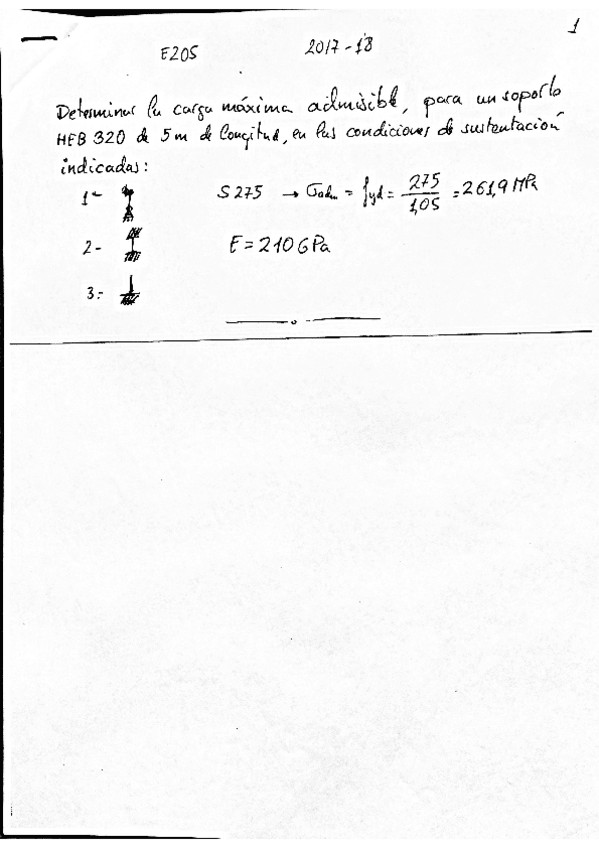 1
E205 2017-18
Determinar la carga máxima admisible, para un soporte
HEB 320 de 5m de Longitud, en las condiciones de sustentación
indicadas:
1- S275 → σadm = fyd = 275/1,05 = 261,9 MPa
2- E = 210 GPa
3-